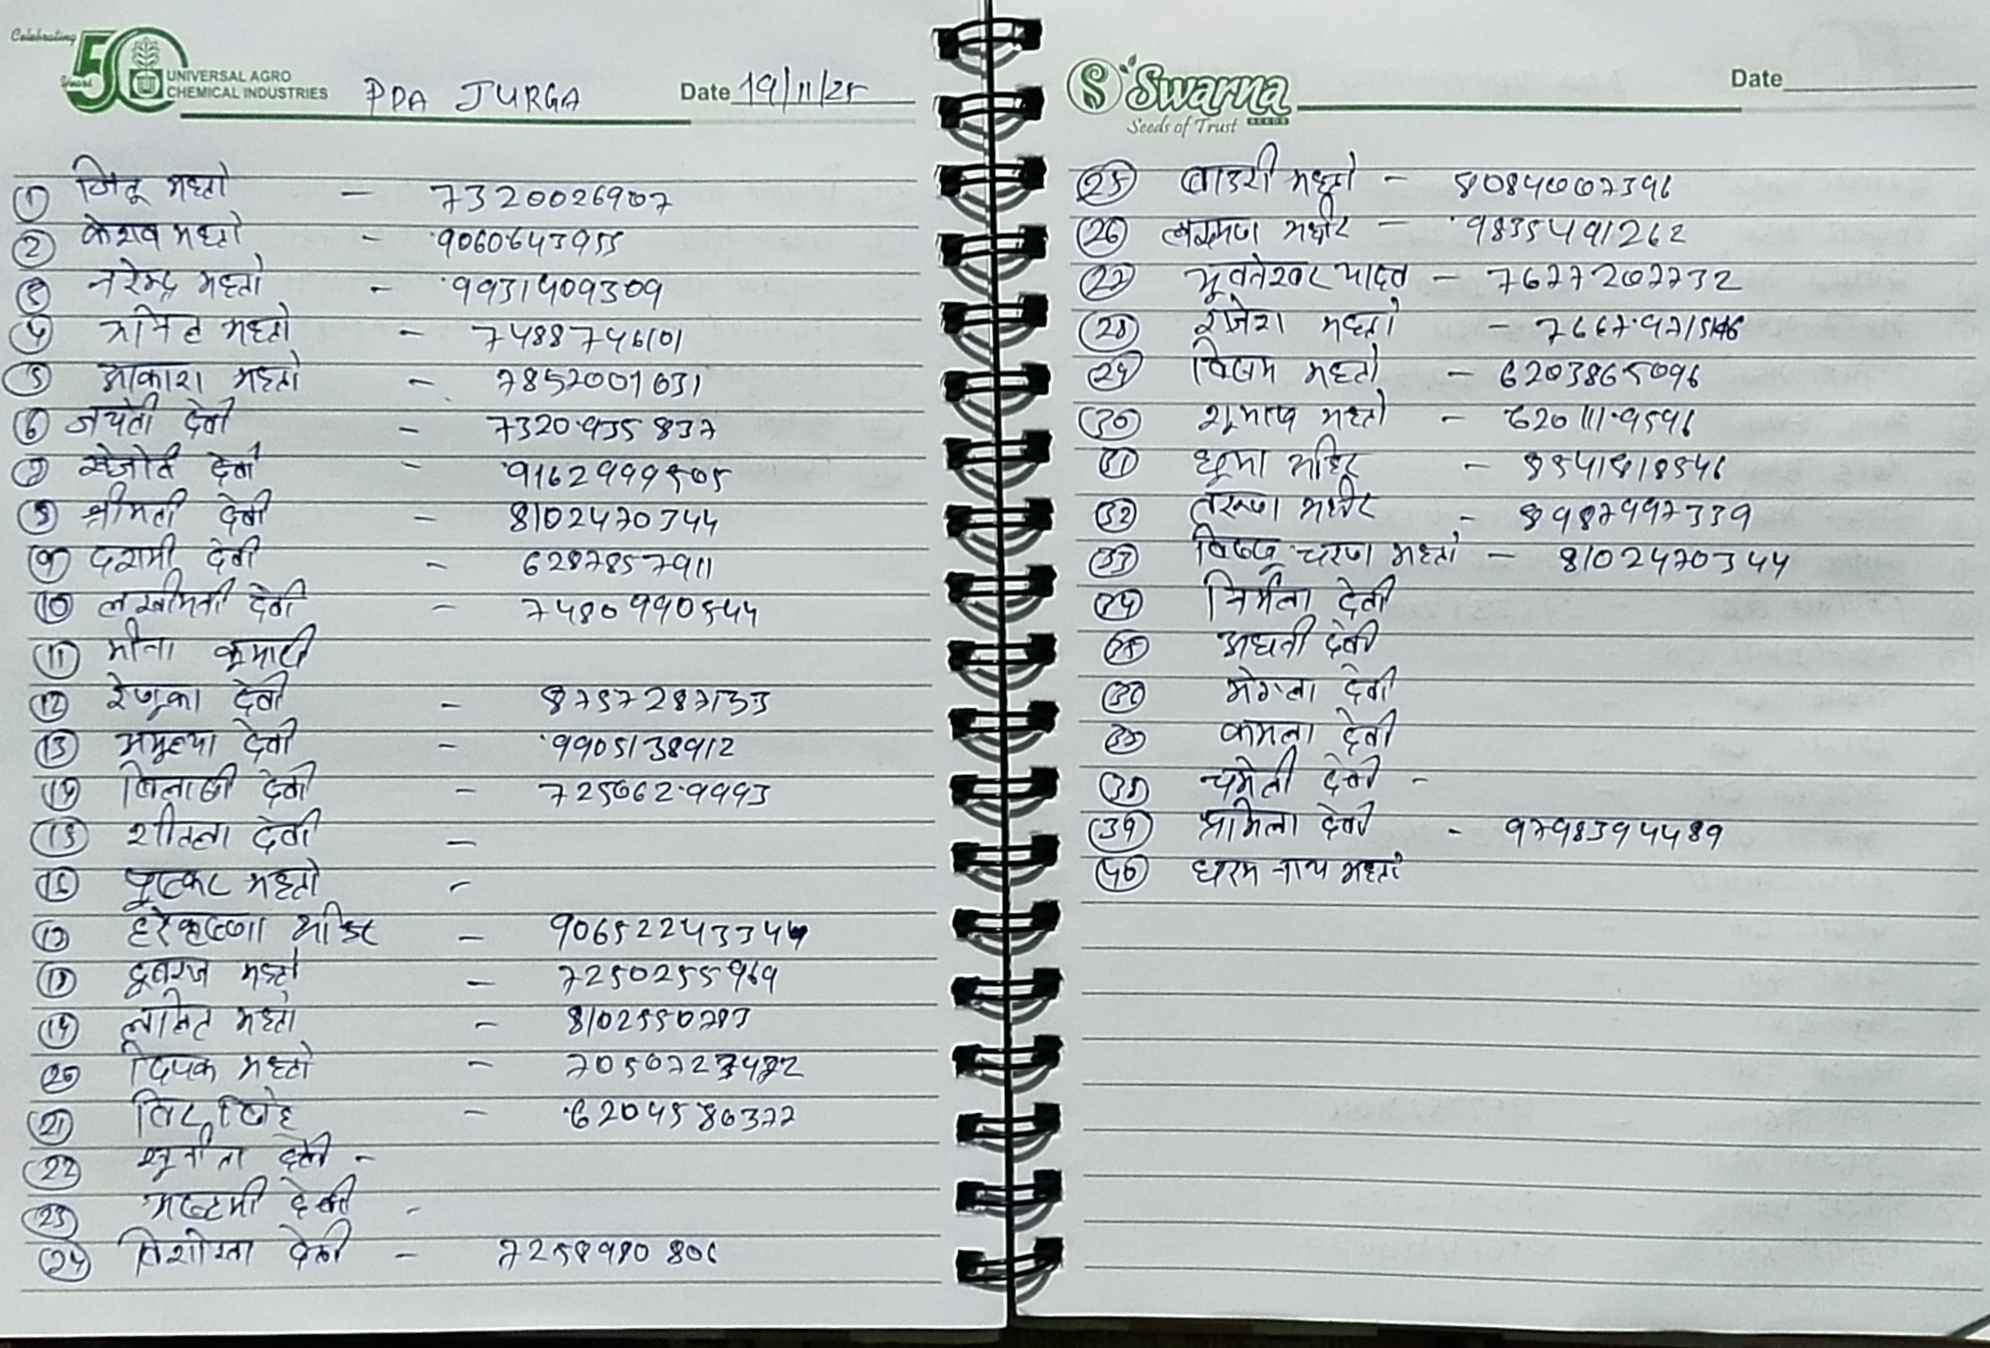 Celebrating
50 Years
UNIVERSAL AGRO
CHEMICAL INDUSTRIES
PDA JURGA
Date 19/11/25
① जितू महतो - 7320026907
② केशव महतो - 9060643955
③ नरेन्द्र महतो - 9931409309
④ महतो - 7488746101
⑤ आकाश महतो - 7852001031
⑥ जयंती देवी - 7320935837
⑦ देवी - 9162999505
⑧ श्रीमती देवी - 8102470344
⑨ दशमी देवी - 6287857911
⑩ लखीमनी देवी - 7480990544
⑪ मीना कुमारी
⑫ रेणुका देवी - 8757287133
⑬ अमूल्या देवी - 9905138912
⑭ देवी - 7250629993
⑮ शीतला देवी -
⑯ पुष्कर महतो -
⑰ हरेकृष्णा - 9065224334
⑱ महतो - 7250255969
⑲ ललित महतो - 8102550793
⑳ दिपक महतो -
㉑ - 6204586377
㉒ सुनीता देवी -
㉓ अष्टमी देवी -
㉔ देवी - 7258980806
Swarna
SEEDS
Seeds of Trust
Date
㉕ महतो - 8084007396
㉖ लक्ष्मण - 9835491262
㉗ भूवनेश्वर यादव - 7677207732
㉘ राजेश महतो -
㉙ विजय महतो - 6203865096
㉚ महतो - 6201119596
㉛ - 8541818546
㉜ तरूण - 8987997339
㉝ विष्णु चरण महतो - 8102470344
㉞ निर्मला देवी
㉟ अघनी देवी
㊱ मंगला देवी
㊲ कमला देवी
㊳ चमेली देवी -
㊴ प्रमिला देवी - 9798394489
㊵ धरम नाथ महतो